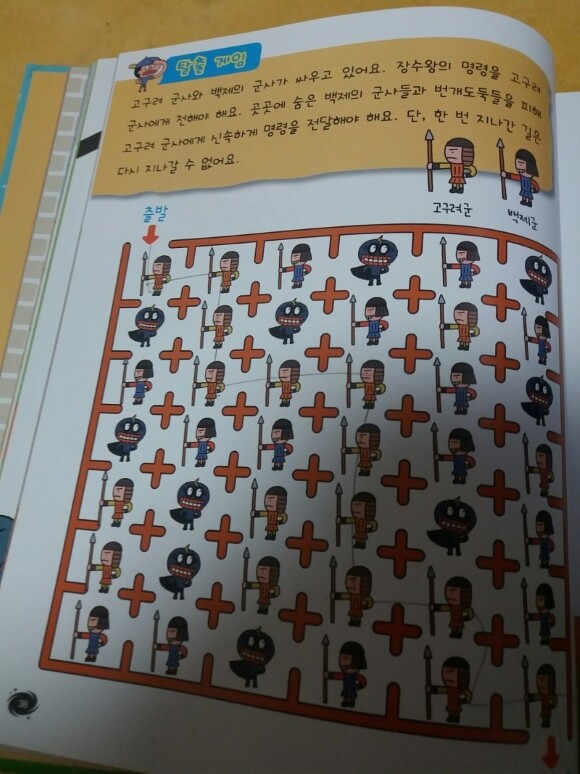 탈출 게임
고구려 군사와 백제의 군사가 싸우고 있어요. 장수왕의 명령을 고구려
군사에게 전해야 해요. 곳곳에 숨은 백제의 군사들과 번개도둑들을 피해
고구려 군사에게 신속하게 명령을 전달해야 해요. 단, 한 번 지나간 길은
다시 지나갈 수 없어요.
출발
고구려군
백제군